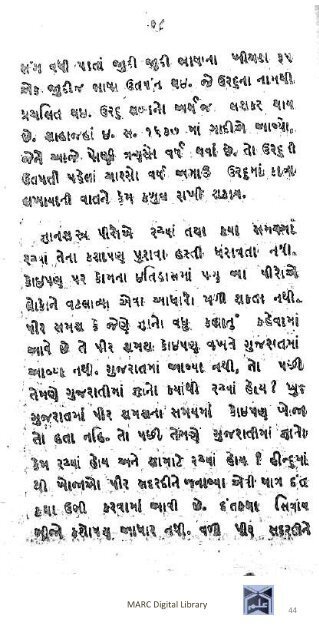 ૭૮
થતાં જુદી જુદી ભાષાના ખીચડા રૂપ
એક જુદીજ ભાષા ઉતપંન થઇ. જે ઉરદુના નામથી
પ્રચલિત થઇ. ઉરદુ શબ્દનો અર્થજ લશકર થાય
છે. શાહાજહાં ઇ. સ. ૧૬૩૭ માં ગાદીએ આવ્યો.
જેને આજે વર્ષ થયાં છે. તો ઉરદુની
ઉતપતી પહેલાં ચારસો વર્ષ અગાઉ ઉરદુમાં
લખાયાની વાતને કેમ કબુલ રાખી શકાય.
પીરોએ રચ્યાં તથા કયા સમયમાં
રચ્યાં તેના કશાપણુ પુરાવા હસ્તી ધરાવતા નથી.
કાઇપણુ પર કોમના ઇતિહાસમાં પણુ આ પીરોએ
લોકોને વટલાવ્યા એવા આધારો મળી શકતા નથી.
પીર સમશ કે જેણે જ્ઞાનો વધુ કહેવામાં
આવે છે તે પીર શમશ કાઇપણુ વખતે ગુજરાતમાં
આવ્યા નથી. ગુજરાતમાં આવ્યા નથી, તો પછી
તેમણે ગુજરાતીમાં જ્ઞાનો કયાંથી રચ્યાં હોય? ખુદ
ગુજરાતમાં પીર શમશના સમયમાં કાઇપણ ખોજા
તો હતા નહિ. તો પછી તેમણે ગુજરાતીમાં જ્ઞાનો
કેમ રચ્યાં હોય અને શામાટે રચ્યાં હોય? હીન્દુમાં
થી ખોજાઓ પીર સદરદીને બનાવ્યા એવી માત્ર દંત
કથા ઉભી કરવામાં આવી છે. દંતકથા સિવાય
બીજો કશોપણુ આધાર નથી. વળી પીર સદરદીને
MARC Digital Library
44